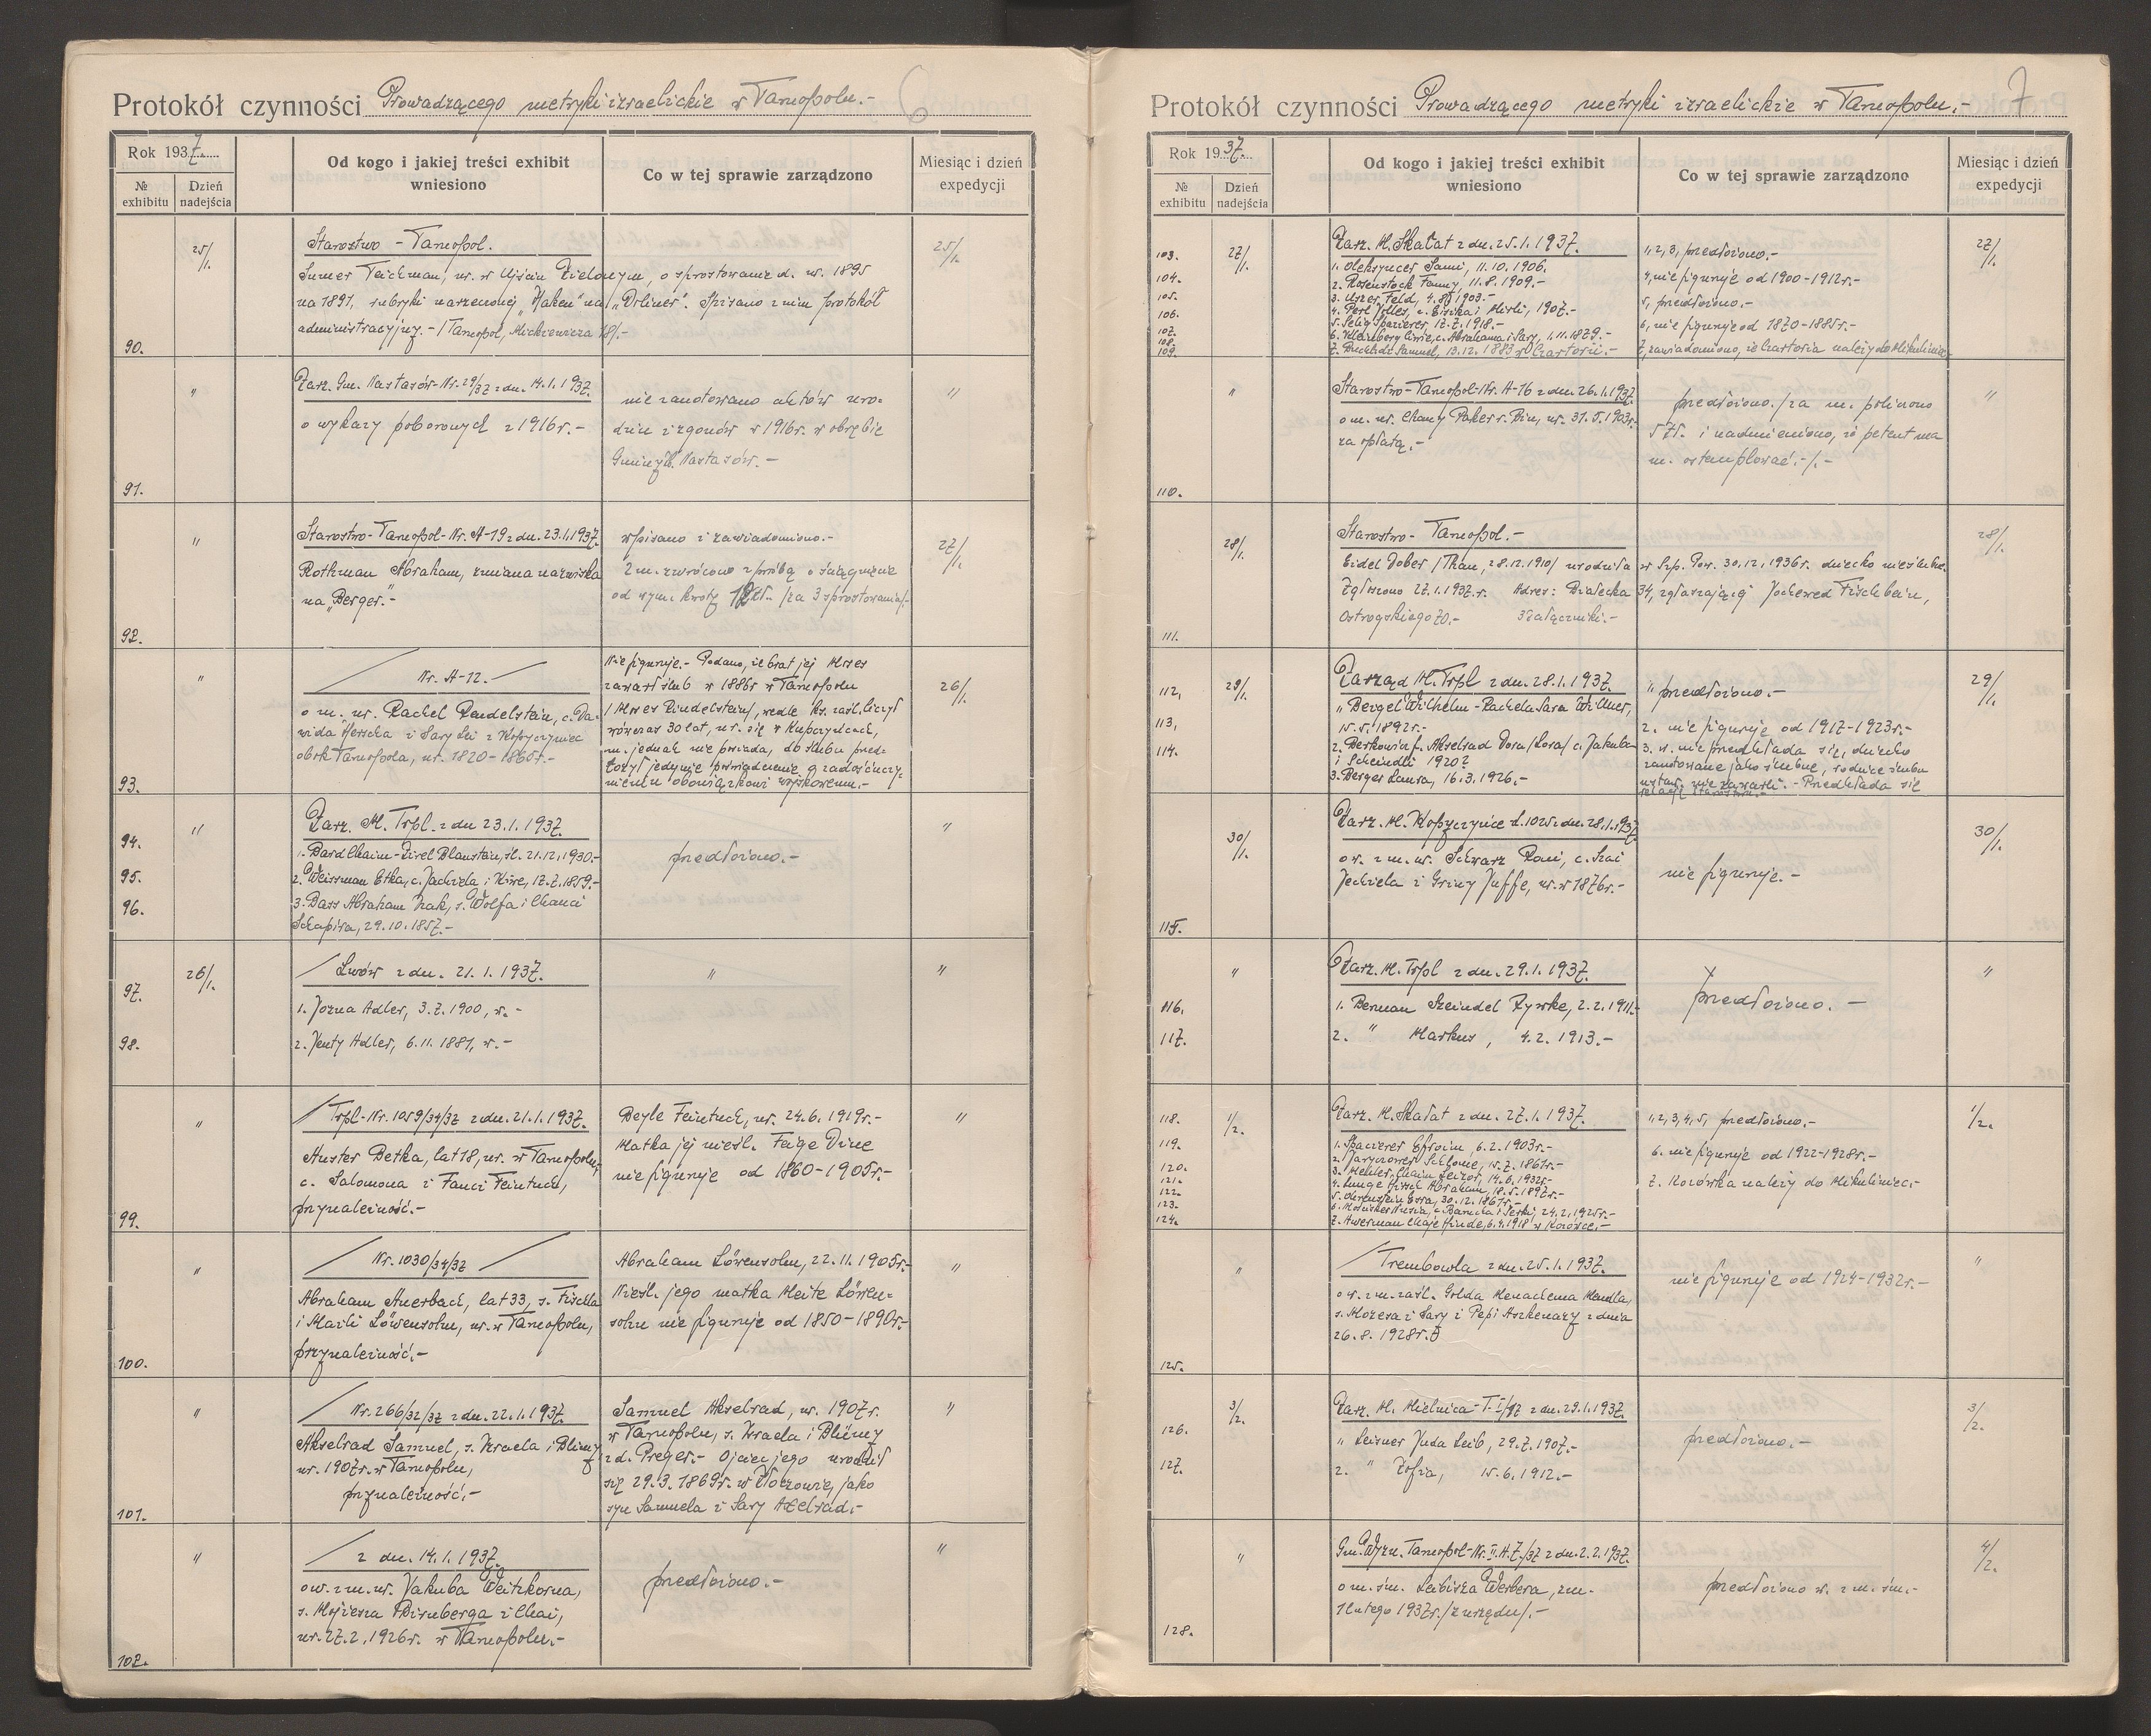 Protokół czynności Prowadzącego metryki izraelickie w Tarnopolu.- 6
Rok 1937.
№ exhibitu
Dzień nadejścia
Od kogo i jakiej treści exhibit wniesiono
Co w tej sprawie zarządzono
Miesiąc i dzień expedycji
90.
25/1.
Starostwo - Tarnopol.
Sumer Teichman, ur. w Ujściu Zielonym, o sprostowanie d. ur. 1895
na 1891, rubryki naszecznej "Haken" na "Drliner". Spisano z nim protokół
administracyjny.- /Tarnopol, Mickiewicza 18/.-
25/1.
91.
"
Zarz. Gm. Nastasów-Nr. 29/37 z dn. 14.1.1937.
o wykazy poborowych z 1916r.-
nie zanotowano aktów uro-
dzin i zgonów w 1916r. w obrębie
Gminy Nastasów.-
"
92.
"
Starostwo-Tarnopol-Nr. A-19 z dn. 23.1.1937.
Rothman Abraham, zmiana nazwiska
na "Berger".-
wpisano i zawiadomiono.-
2 m. zwrócono z prośbą o ściągnięcie
od wym. kwoty zł. /za 3 sprostowania/.-
27/1.
93.
"
Nr. A-12.-
o m. ur. Rachel Rendelstein, c. Da-
wida Herscha i Sary Lei z Kopyczyniec
obok Tarnopola, ur. 1820-1860r.-
Nie figuruje.- Podano, że brat jej Moses
zawarł ślub w 1886r w Tarnopolu
/Moses Rindelstein/, wedle ks. zaśl. liczył
wówczas 30 lat, ur. się w Kupczyńcach,
m. jednak nie posiada, do ślubu przed-
łożył jedynie poświadczenie zadośćuczy-
nieniu obowiązkowi wojskowemu.-
26/1.
94.
95.
96.
"
Zarz. M. Trpl. z dn 23.1.1937.
1. Bard Chaim-Zirel Blaustein, śl. 21.12.1930.-
2. Weissman Etka, c. Jachiela i Kiwe, 17.7.1859.-
3. Bass Abraham Izak, s. Wolfa i Chanci
Schapira, 29.10.1857.-
przedłożono.-
"
97.
98.
26/1.
Lwów z dn. 21.1.1937.
1. Jozua Adler, 3.7.1900, w.-
2. Jenty Adler, 6.11.1881, w.-
"
"
99.
"
Trpl-Nr. 1059/34/37 z dn. 21.1.1937.
Auster Betka, lat 18, ur. w Tarnopolu,
c. Salomona i Fanci Feintuch,
przynależność.-
Beyle Feintuch, ur. 24.6.1919r.-
Matka jej nieśl. Feige Dine
nie figuruje od 1860-1905r.-
"
100.
"
Nr. 1030/34/37
Abraham Auerbach, lat 33, s. Fischla
i Maili Löwensohn, ur. w Tarnopolu,
przynależność.-
Abraham Löwensohn, 22.11.1905r.-
Nieśl. jego matka Meite Löwen-
sohn nie figuruje od 1850-1890r.-
"
101.
"
Nr. 266/32/37 z dn. 22.1.1937.
Akselrad Samuel, s. Izraela i Blimy
ur. 1907r. w Tarnopolu,
przynależność.-
Samuel Akselrad, ur. 1907r.
w Tarnopolu, s. Izraela i Blimy
z d. Preger.- Ojciec jego urodził
się 29.3.1869r. w Złoczowie, jako
syn Samuela i Sary Axelrad.-
"
102.
"
z dn. 14.1.1937.
o w. z m. ur. Jakuba Weitzkorna,
s. Mojżesza Birnberga i Chai,
ur. 27.2.1926r. w Tarnopolu.-
przedłożono.-
"
Protokół czynności Prowadzącego metryki izraelickie w Tarnopolu.- 7
Rok 1937.
№ exhibitu
Dzień nadejścia
Od kogo i jakiej treści exhibit wniesiono
Co w tej sprawie zarządzono
Miesiąc i dzień expedycji
103.
104.
105.
106.
107.
108.
109.
27/1.
Zarz. M. Skałat z dn. 25.1.1937.
1. Oleksyncer Sami, 11.10.1906.
2. Rosenstock Fanny, 11.8.1909.-
3. Uszer Feld, 4.8. 1903.-
4. Perl Jolles, c. Eisika i Mirli, 1907.-
5. Selig Spazierer, 17.7.1918.-
6. Kleinberg Cirie, c. Abrahama i Sary, 1.11.1879.-
7. Samuel, 13.12.1883 w Czartorii.-
1,2,3, przedłożono.-
4, nie figuruje od 1900-1912r.-
5, przedłożono.-
6, nie figuruje od 1870-1885r.-
7, zawiadomiono, że Czartoria należy do Mikuliniec
27/1.
110.
"
Starostwo-Tarnopol-Nr. A-16 z dn. 26.1.1937.
o m. ur. Chany Paker v. Bin, ur. 31.5.1903r.
za opłatą.-
przedłożono. /za m. policzono
5 zł. i nadmieniono, że petent ma
m. ostemplować.-/.-
"
111.
28/1.
Starostwo-Tarnopol.-
Eidel Dober /Than, 28.12.1910/ urodziła w Szp. Pow. 30.12.1936r. dziecko nieślubne.
Zgłoszono 27.1.1937.r. Adres: Białecka 34, zgłaszający Jochewed Fischbein,
Ostrogskiego 70.- 3 załączniki.-
28/1.
112.
113.
114.
29/1.
Zarząd M. Trpl z dn. 28.1.1937.
" Bergel Wilhelm - Rachela Sara Willner,
15.5.1892r.-
2. Berkowicz f. Akselrad Dora /Lora/ c. Jakuba
i Scheindli 1920?
3. Berger Laura, 16.3.1926.-
" przedłożono.-
2. nie figuruje od 1917-1923r.-
3. w. nie przedkłada się, dziecko
zanotowane jako ślubne, rodzice ślubu
ustaw. nie zawarli.- Przedkłada się
relację Starostwu.-
29/1.
115.
30/1.
Zarz. M. Kopyczyńce L. 1025 z dn. 28.1.1937
o w. z m. ur. Schwarz Rosi, c. Szai
Jechiela i Griny Juffe, ur. w 1876r.-
nie figuruje.-
30/1.
116.
117.
"
Zarz. M. Trpl z dn. 29.1.1937.
1. Berman Szeindel Rywke, 2.2.1911.-
2. " Markus, 4.2.1913.-
przedłożono.-
"
118.
119.
120.
121.
122.
123.
124.
1/2.
Zarz. M. Skałat z dn. 27.1.1937.
1. Spazierer Efroim, 6.2.1903r.-
2. Jaryczower Schlome, 15.7.1861r.-
3. Mehler Chaim Leizor, 14.6.1932r.-
4. Lunge Hirsch Abraham, 18.5.1897r.-
5. Sara, 30.12.1861r.-
6. Nusia, c. Barucha i Perki, 24.2.1925r.-
7. Auerman Chaje Hinde, 6.4.1918 w Kozówce.-
1,2,3,4,5, przedłożono.-
6. nie figuruje od 1922-1928r.-
7. Kozówka należy do Mikuliniec.-
1/2.
125.
"
Trembowla z dn. 25.1.1937.
o w. z m. zaśl. Golda Menachema Mendla,
s. Mozesa i Sary i Pepi Aszkenazy z dnia
26.8.1928r.
nie figuruje od 1924-1932r.-
"
126.
127.
3/2.
Zarz. M. Mielnica-T-I/37 z dn. 29.1.1937.
" Leizner Juda Leib, 29.7.1907.-
2. " Zofia, 15.6.1912.-
przedłożono.-
3/2.
128.
"
Gm. Wyzn. Tarnopol-Nr. II.A.7./37 z dn. 2.2.1937.
o m. śm. Leibisza Werbera, zm.
1 lutego 1937r. /z urzędu/.-
przedłożono w. z m. śm.-
4/2.